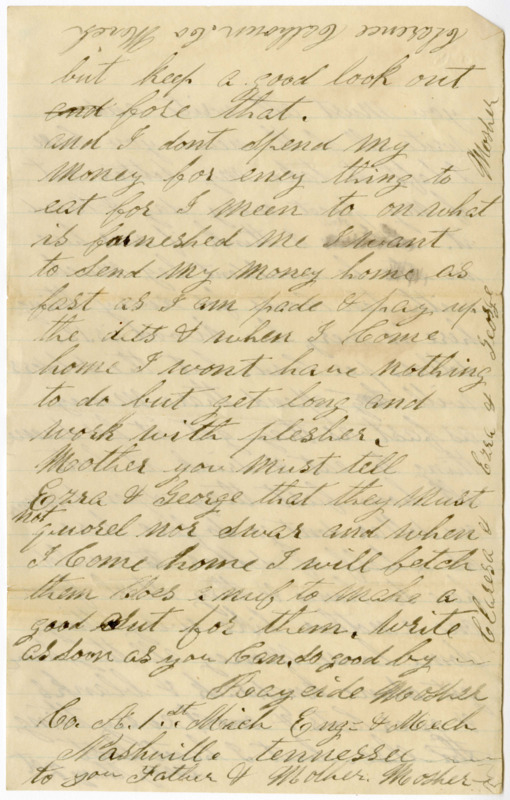 Clarence Calhoun Co Mich
but keep a good look out
and fore that.
and I dont spend my
money for eney thing to
eat for I meen to on what
is farneshed me I want
to send my money home as
fast as I am pade & pay up
the dets & when I Come
home I wont have nothing
to do but get long and
work with plesher.
Mother you must tell
Ezra & George that they must
not
quorel nor swar and when
I Come home I will fetch
them Cloes enuf to make a
good Sut for them. Write
as soon as you Can. so good by
Mosher
Co. A. 1st Mich Eng- & Mech
Nashville tennessee
to you Father & Mother. Mosher
Claresa & Ezra & George Mosher